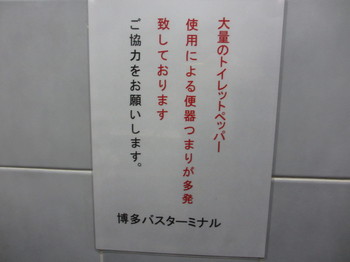 大量のトイレットペッパー
使用による便器つまりが多発
致しております
ご協力をお願いします。
博多バスターミナル